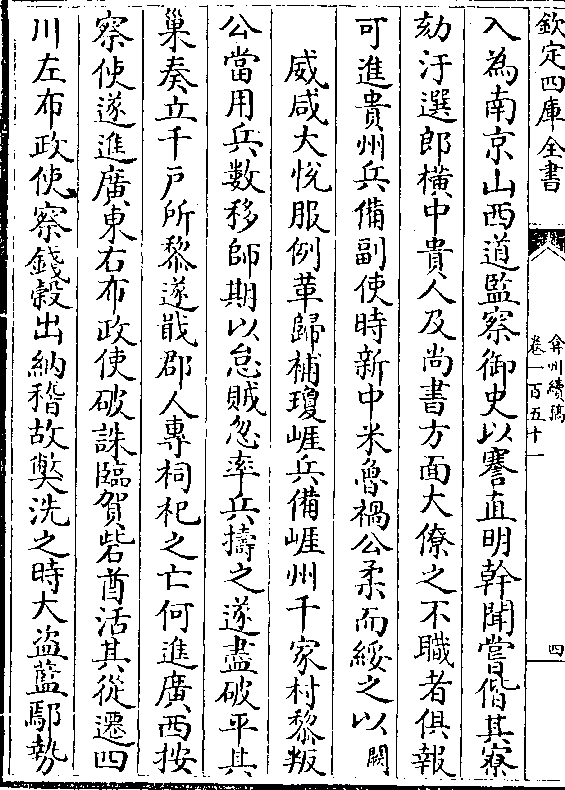 欽定四庫全書
弇州續稿
卷一百五十一
四
入為南京山西道監察御史以謇直明幹聞嘗偕其寮
劾汙選郎橫中貴人及尚書方面大僚之不職者俱報
可進貴州兵備副使時新中米魯禍公柔而綏之以闕
威咸大悅服例革歸補瓊崖兵備崖州千家村黎叛
公當用兵數移師期以怠賊忽率兵擣之遂盡破平其
巢奏立千戶所黎遂戢郡人專祠祀之亡何進廣西按
察使遂進廣東右布政使破誅臨賀砦酋活其從遷四
川左布政使察錢穀出納稽故獘洗之時大盜藍鄢勢